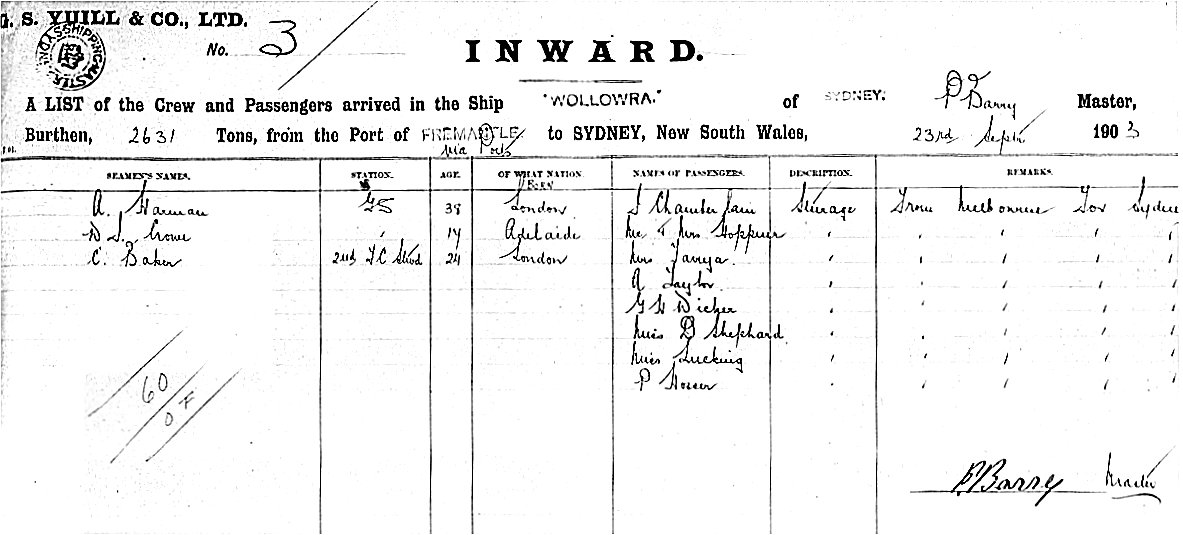 G. S. YUILL & CO., LTD.
SHIPPING MASTER SYDNEY
No. 3
INWARD.
A LIST of the Crew and Passengers arrived in the Ship "WOLLOWRA." of SYDNEY. P Barry Master,
Burthen, 2631 Tons, from the Port of FREMANTLE to SYDNEY, New South Wales, 23rd Septr 1903
via Ports
SEAMEN'S NAMES. STATION. AGE. OF WHAT NATION. NAMES OF PASSENGERS. DESCRIPTION. REMARKS.
Born
A. Harman GS 38 London Chamberlain Steerage From Melbourne For Sydney
D. S. Crowe " 14 Adelaide Mr & Mrs Hoppner " " " " "
C. Baker 2nd Stwd 24 London Mrs " " " " "
A Taylor " " " " "
G H Dicker " " " " "
Miss B Shephard " " " " "
Miss Lucking " " " " "
P " " " " "
60
OF
P Barry Master